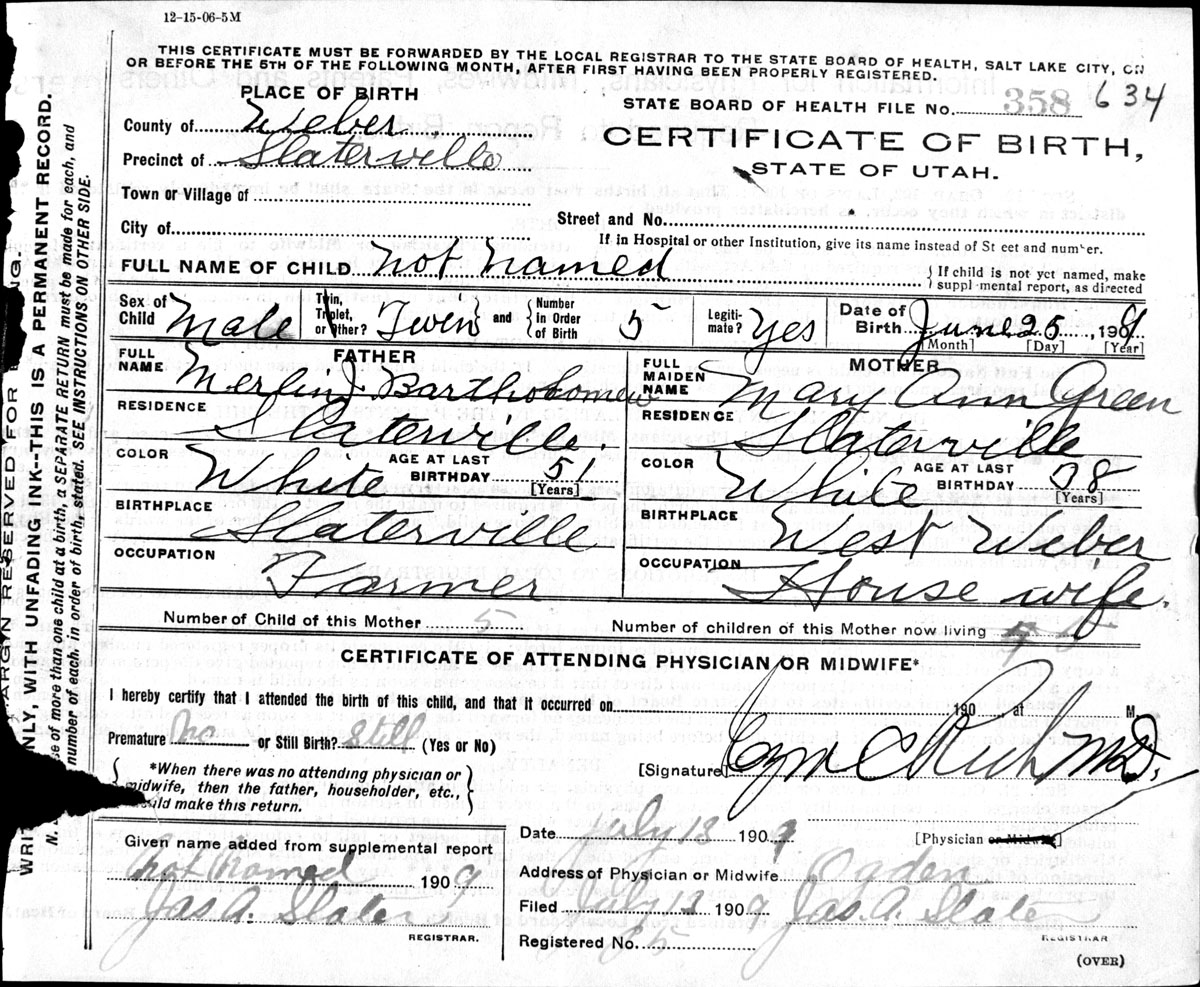 12-15-06-5M
THIS CERTIFICATE MUST BE FORWARDED BY THE LOCAL REGISTRAR TO THE STATE BOARD OF HEALTH, SALT LAKE CITY, ON
OR BEFORE THE 5TH OF THE FOLLOWING MONTH, AFTER FIRST HAVING BEEN PROPERLY REGISTERED.
PLACE OF BIRTH
STATE BOARD OF HEALTH FILE No. 358 634
County of Weber
CERTIFICATE OF BIRTH,
Precinct of Slaterville
STATE OF UTAH.
Town or Village of
City of
Street and No.
If in Hospital or other Institution, give its name instead of St eet and number.
FULL NAME OF CHILD Not Named
{ If child is not yet named, make supplmental report, as directed
Sex of Child Male
Twin, Triplet, or Other? Twin and { Number in Order of Birth 5
Legitimate? Yes
Date of Birth June 25, 190
[Month] [Day] [Year]
FATHER
FULL NAME Merlin J. Bartholomew
RESIDENCE Slaterville
COLOR White AGE AT LAST BIRTHDAY 51 [Years]
BIRTHPLACE Slaterville
OCCUPATION Farmer
MOTHER
FULL MAIDEN NAME Mary Ann Green
RESIDENCE Slaterville
COLOR White AGE AT LAST BIRTHDAY 38 [Years]
BIRTHPLACE West Weber
OCCUPATION House wife.
Number of Child of this Mother 5
Number of children of this Mother now living
CERTIFICATE OF ATTENDING PHYSICIAN OR MIDWIFE*
I hereby certify that I attended the birth of this child, and that it occurred on 190 , at M
Premature No or Still Birth? Still (Yes or No)
*When there was no attending physician or
midwife, then the father, householder, etc.,
should make this return.
[Signature] Rich M.D.
[Physician or Midwife]
Given name added from supplemental report
Not Named 190 9
Jas. A. Slater
REGISTRAR.
Date July 13 1909
Address of Physician or Midwife Ogden
Filed July 13 1909 Jas. A. Slater
REGISTRAR
Registered No.
(OVER)
MARGYN RESERVED FOR
ONLY, WITH UNFADING INK--THIS IS A PERMANENT RECORD.
se of more than one child at a birth, a SEPARATE RETURN must be made for each, and
number of each, in order of birth, stated. SEE INSTRUCTIONS ON OTHER SIDE.